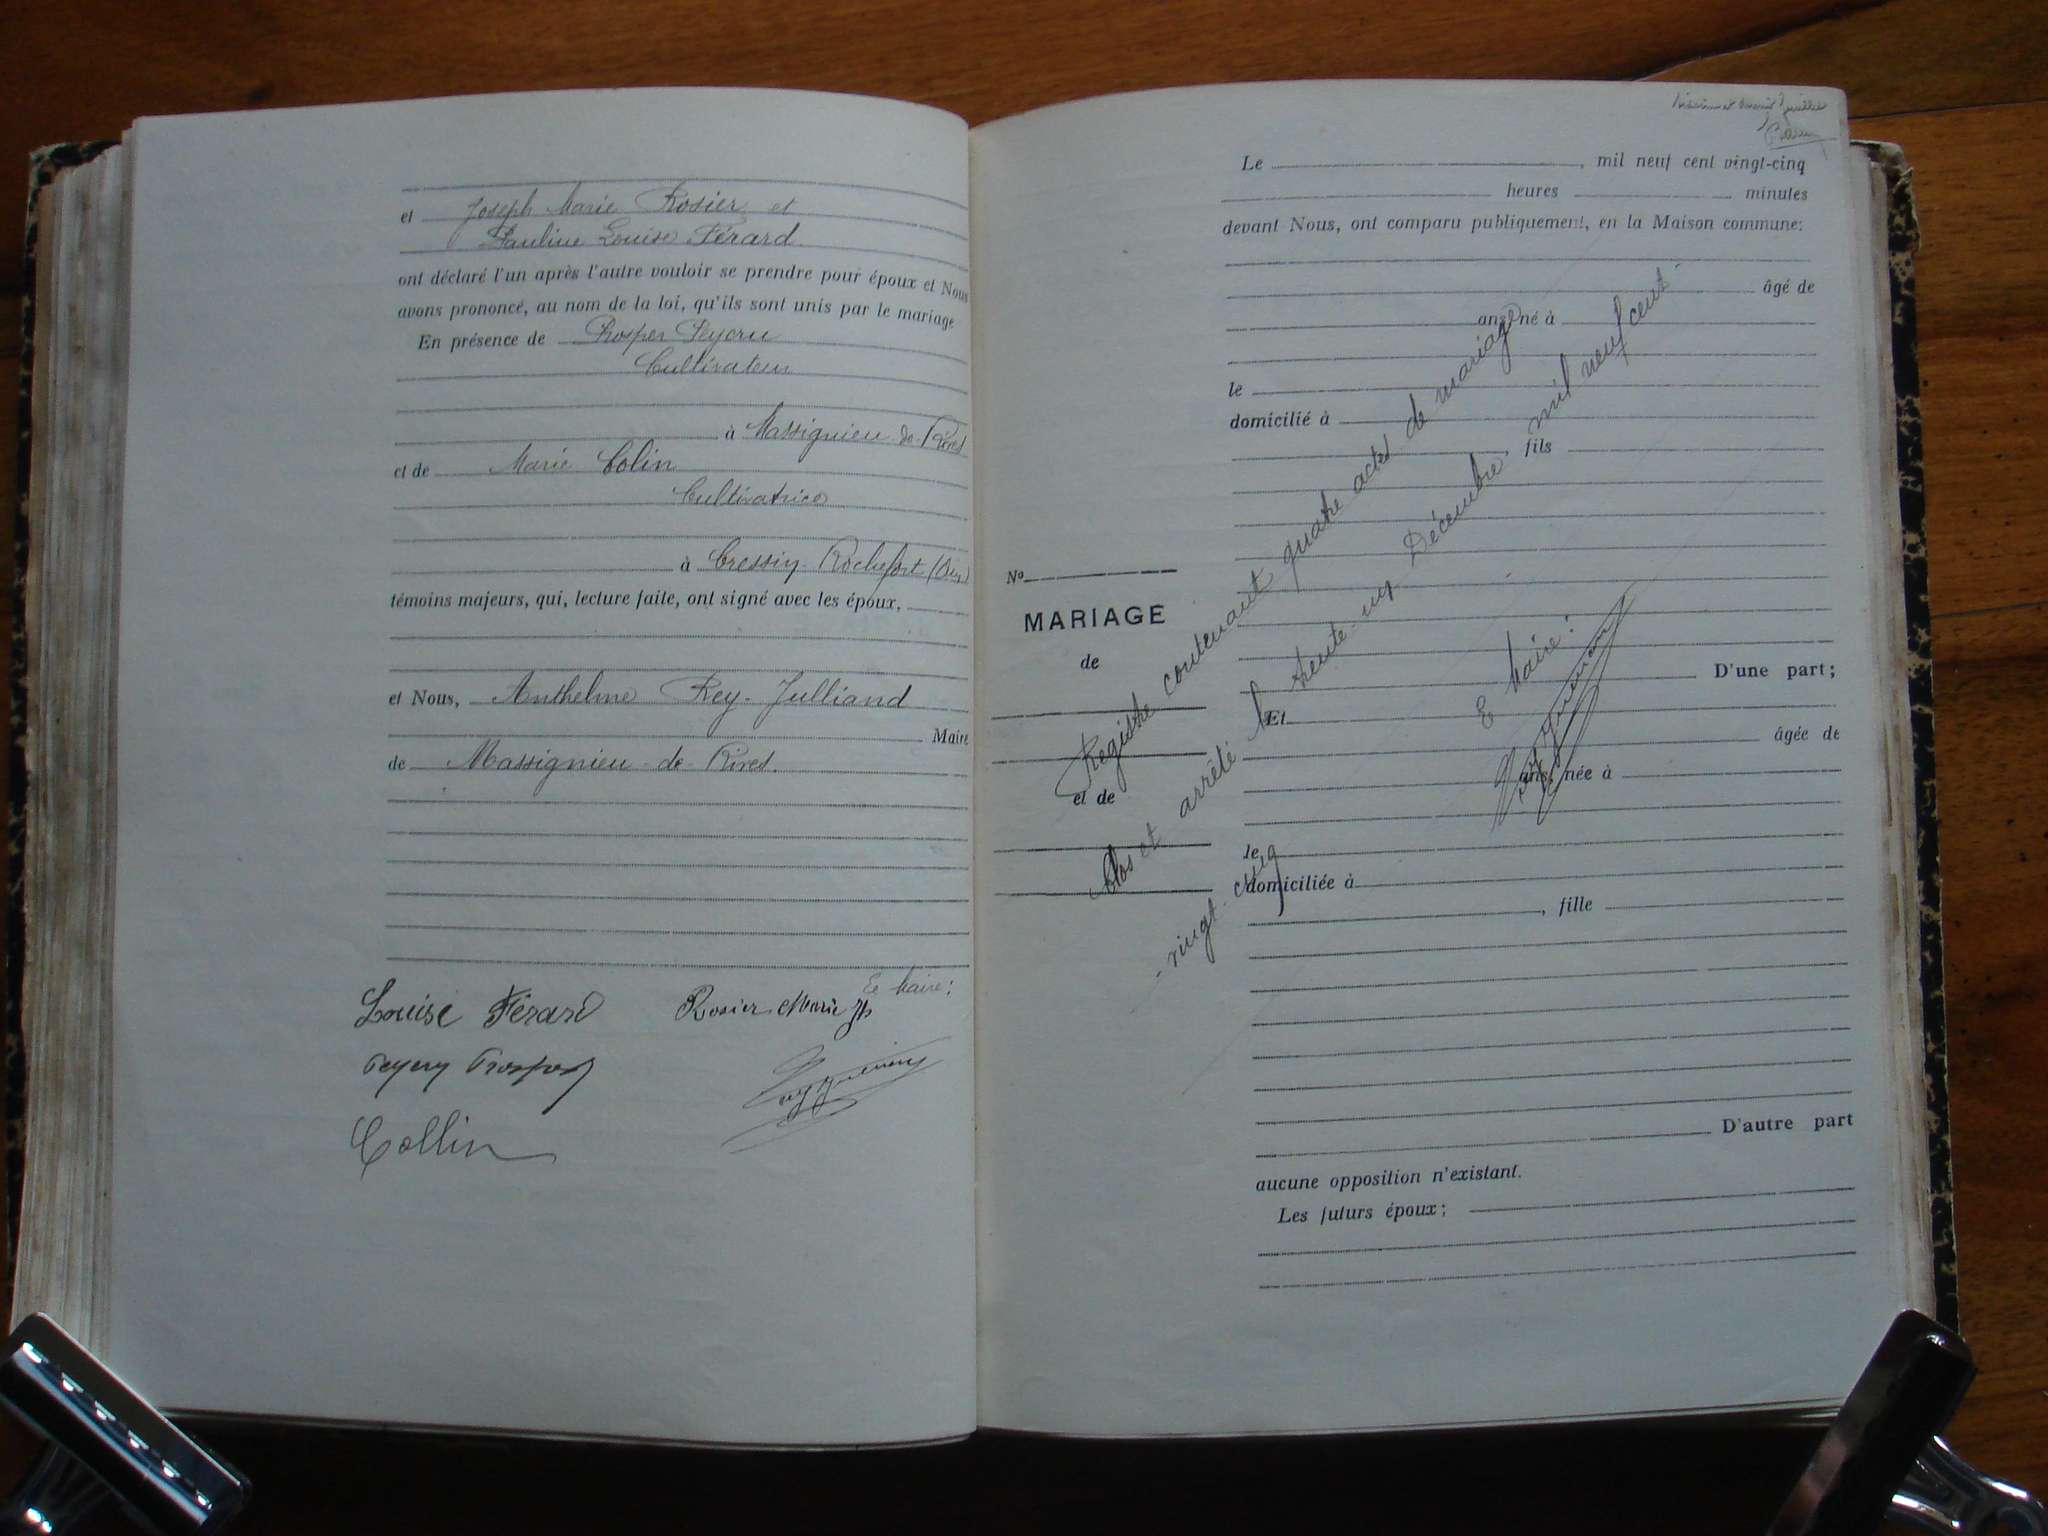 et Joseph Marie Rosier et
Pauline Louise Férard
ont déclaré l'un après l'autre vouloir se prendre pour époux et Nous
avons prononcé, au nom de la loi, qu'ils sont unis par le mariage
En présence de Prosper Peycru
Cultivateur
à Massignieu-de-Rives
et de Marie Colin
Cultivatrice
à Cressin-Rochefort (Ain)
témoins majeurs, qui, lecture faite, ont signé avec les époux,
et Nous, Anthelme Rey-Julliand
Maire
de Massignieu-de-Rives.
Le Maire:
Louise Férard Rosier Marie Jh
Prosper
Collin
feuillet
Le , mil neuf cent vingt-cinq
heures minutes
devant Nous, ont comparu publiquement, en la Maison commune:
âgé de
ans, né à
le
domicilié à
, fils
No
MARIAGE
de
D'une part;
Et
âgée de
ans, née à
et de
le
domiciliée à
, fille
D'autre part
aucune opposition n'existant.
Les futurs époux;
Registre contenant quatre actes de mariage
Clos et arrêté le trente-un Décembre mil neuf cent
-vingt-cinq
Le Maire: